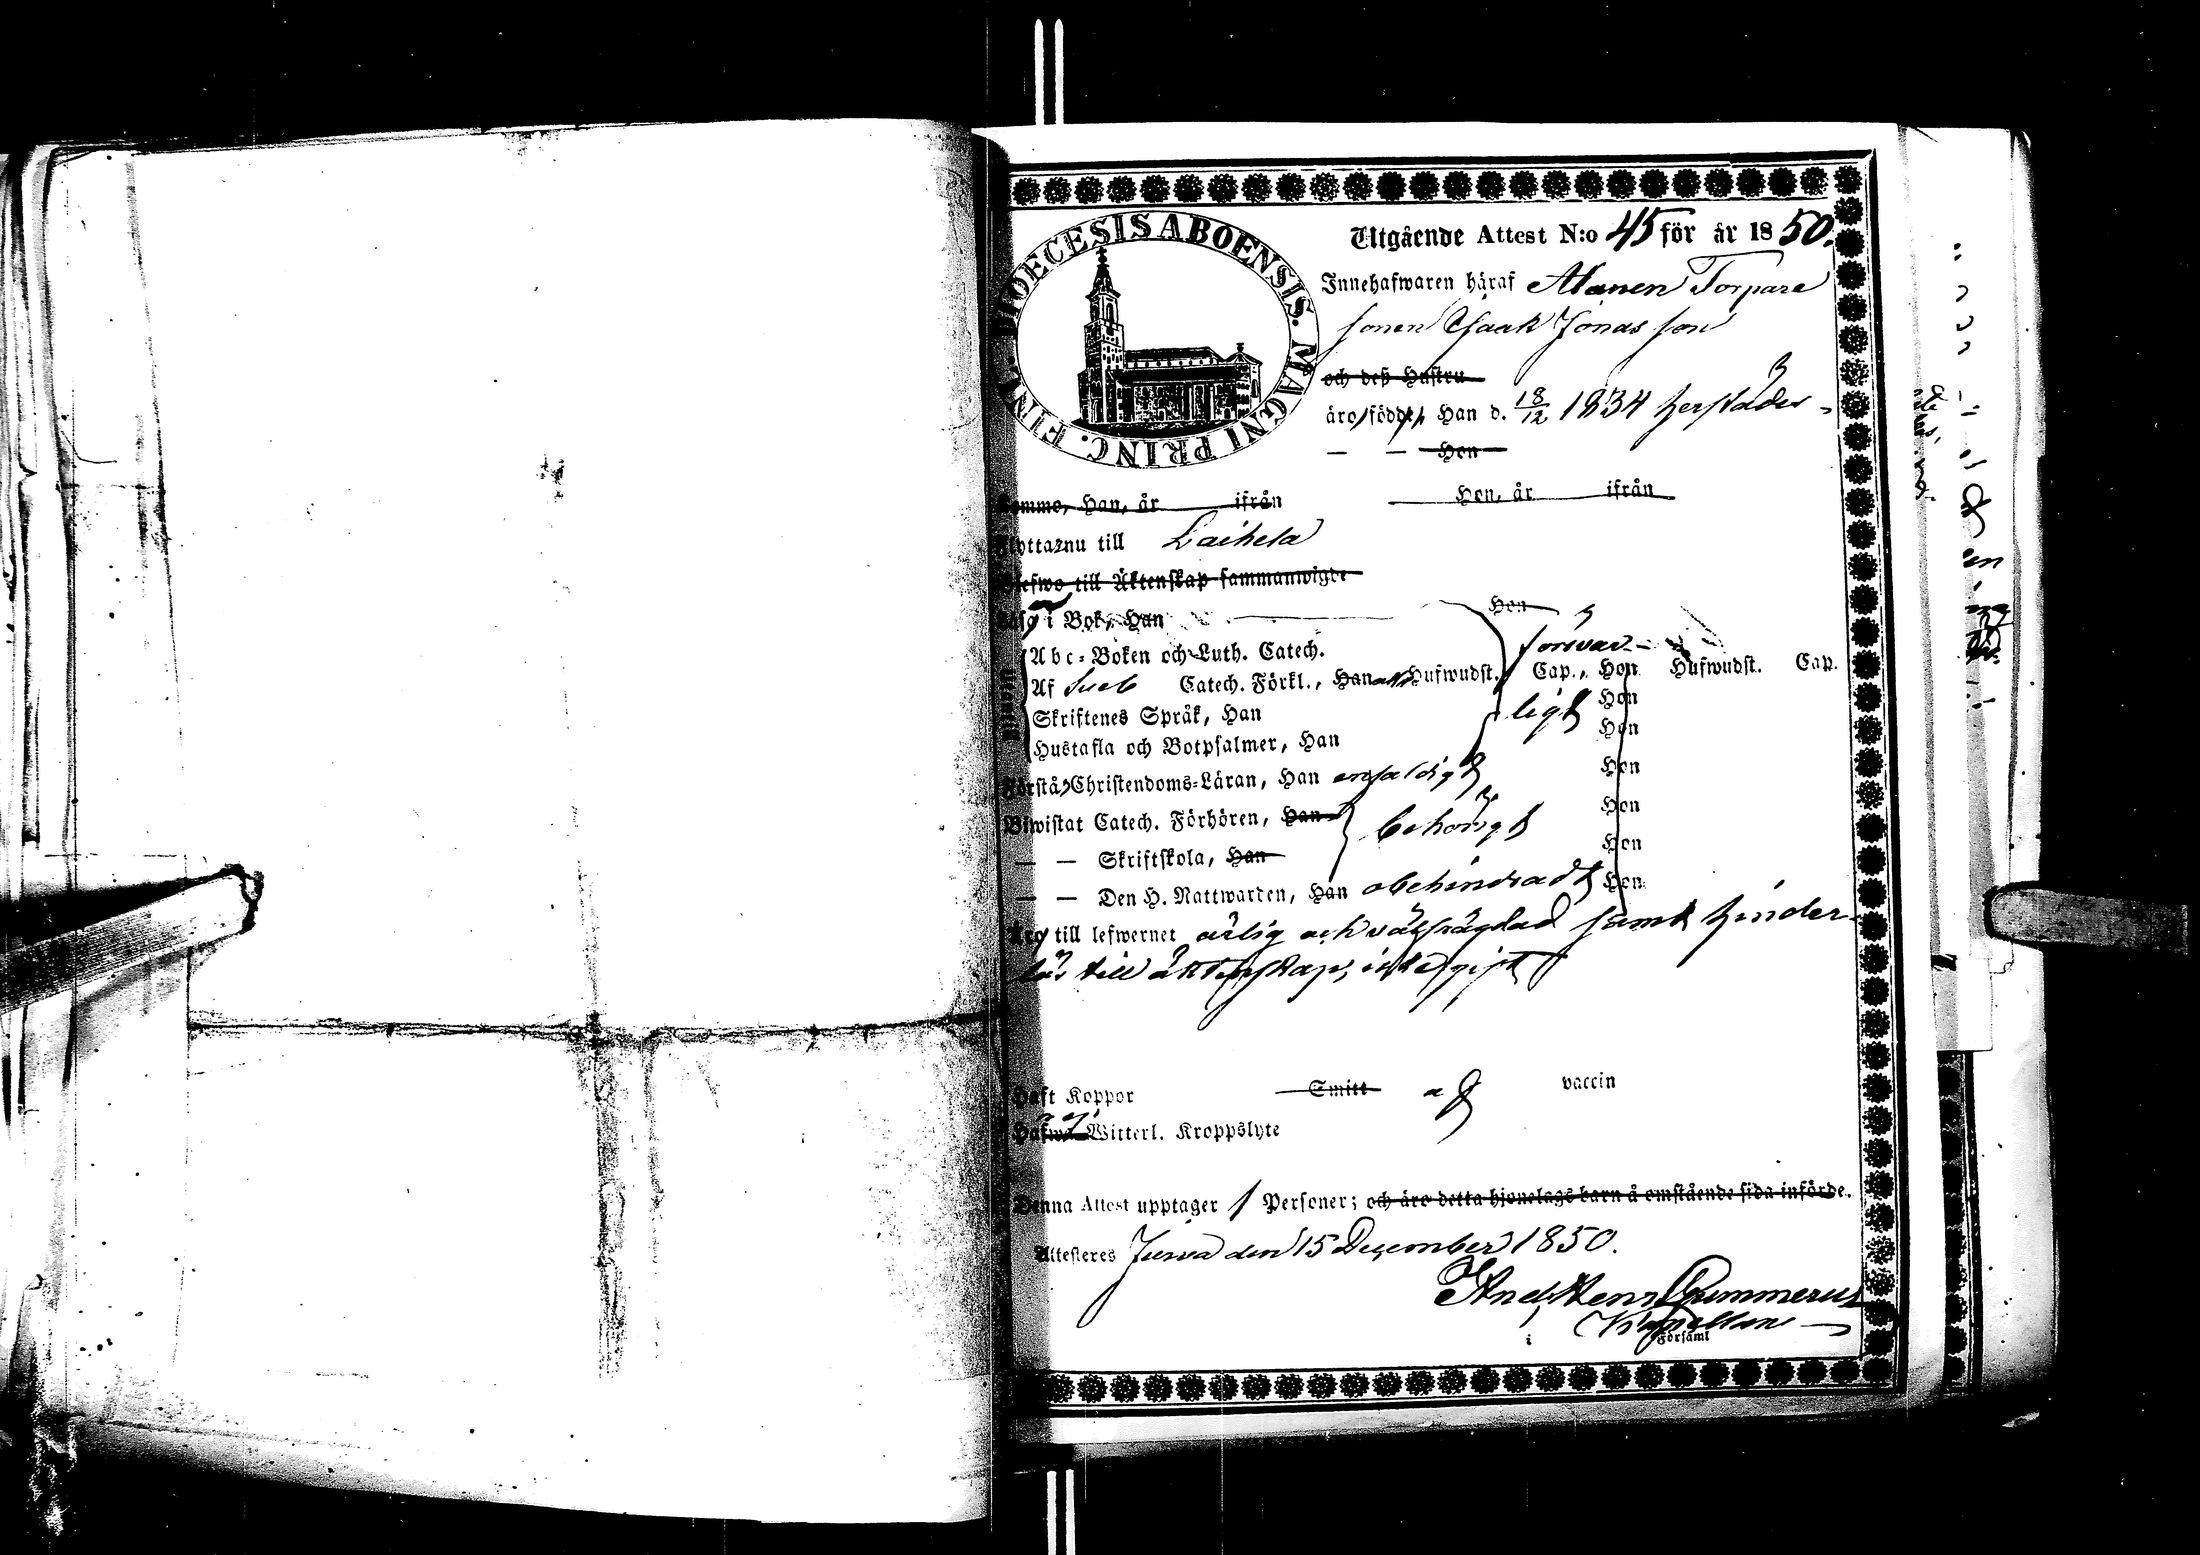 DIOECESIS ABOENSIS. MAGNI PRINC. FINL.
Utgående Attest N:o 45 för år 1850.
Innehafwaren häraf Alanen Torpare
sonen Isaak Jonasson
och deß Hustru
äro födde, Han d. 18/12 1834 härstädes
— — Hon
Komne, Han, år ifrån Hon, år ifrån
Flytta nu till Laihela
Blefwo till Äktenskap sammanwigde
Läsa i Bok, Han Hon
Abc-Boken och Luth. Catech. försvar-
Af Sveb Catech. Förkl., Han Hufwudst. Cap., Hon Hufwudst. Cap.
Skriftenes Språk, Han ligt Hon
Hustafla och Botpsalmer, Han Hon
Förstå Christendoms-Läran, Han enfaldigt Hon
Biwistat Catech. Förhören, Han behörigt Hon
— — Skriftskola, Han Hon
— — Den H. Nattwarden, Han obehindradt Hon
Äro till lefwernet ärlig och välfrägdad samt hinder-
lös till äktenskap, icke gift
Haft Koppor Smitt af vaccin
Hafwa ej Witterl. Kroppslyte
Denna Attest upptager 1 Personer; och äro detta hjonelags barn å omstående sida införde.
Attesteres Jurva den 15 December 1850.
And. Henr. Gummerus
Kapellan
i Församl